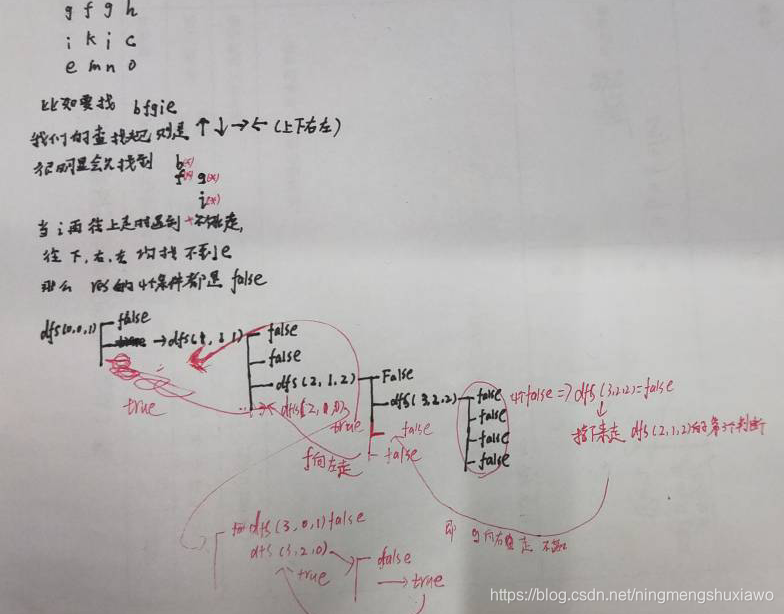 g f g h
i k j c
e m n o
比如要找 bfgie
我们的查找规则是 ↑↓→← (上下右左)
很明显会先找到 b(x)
f(x) g(x)
i(x)
当i再往上走时遇到*不能走,
往下,右,左 均找不到e
那么 的4个条件都是 false
dfs(0,0,1) false
→dfs(1,1,1) false
false
dfs(2,1,2) False
dfs(3,2,2) false
false
false
false
4个false => dfs(3,2,2)=false
接下来走 dfs(2,1,2)的第3个判断
true
dfs(2,0,0)
true
false
false
f向左走
即 g向右 走 不能
dfs(3,0,1) false
dfs(3,2,0)
true
false
→true
https://blog.csdn.net/ningmengshuxiawo